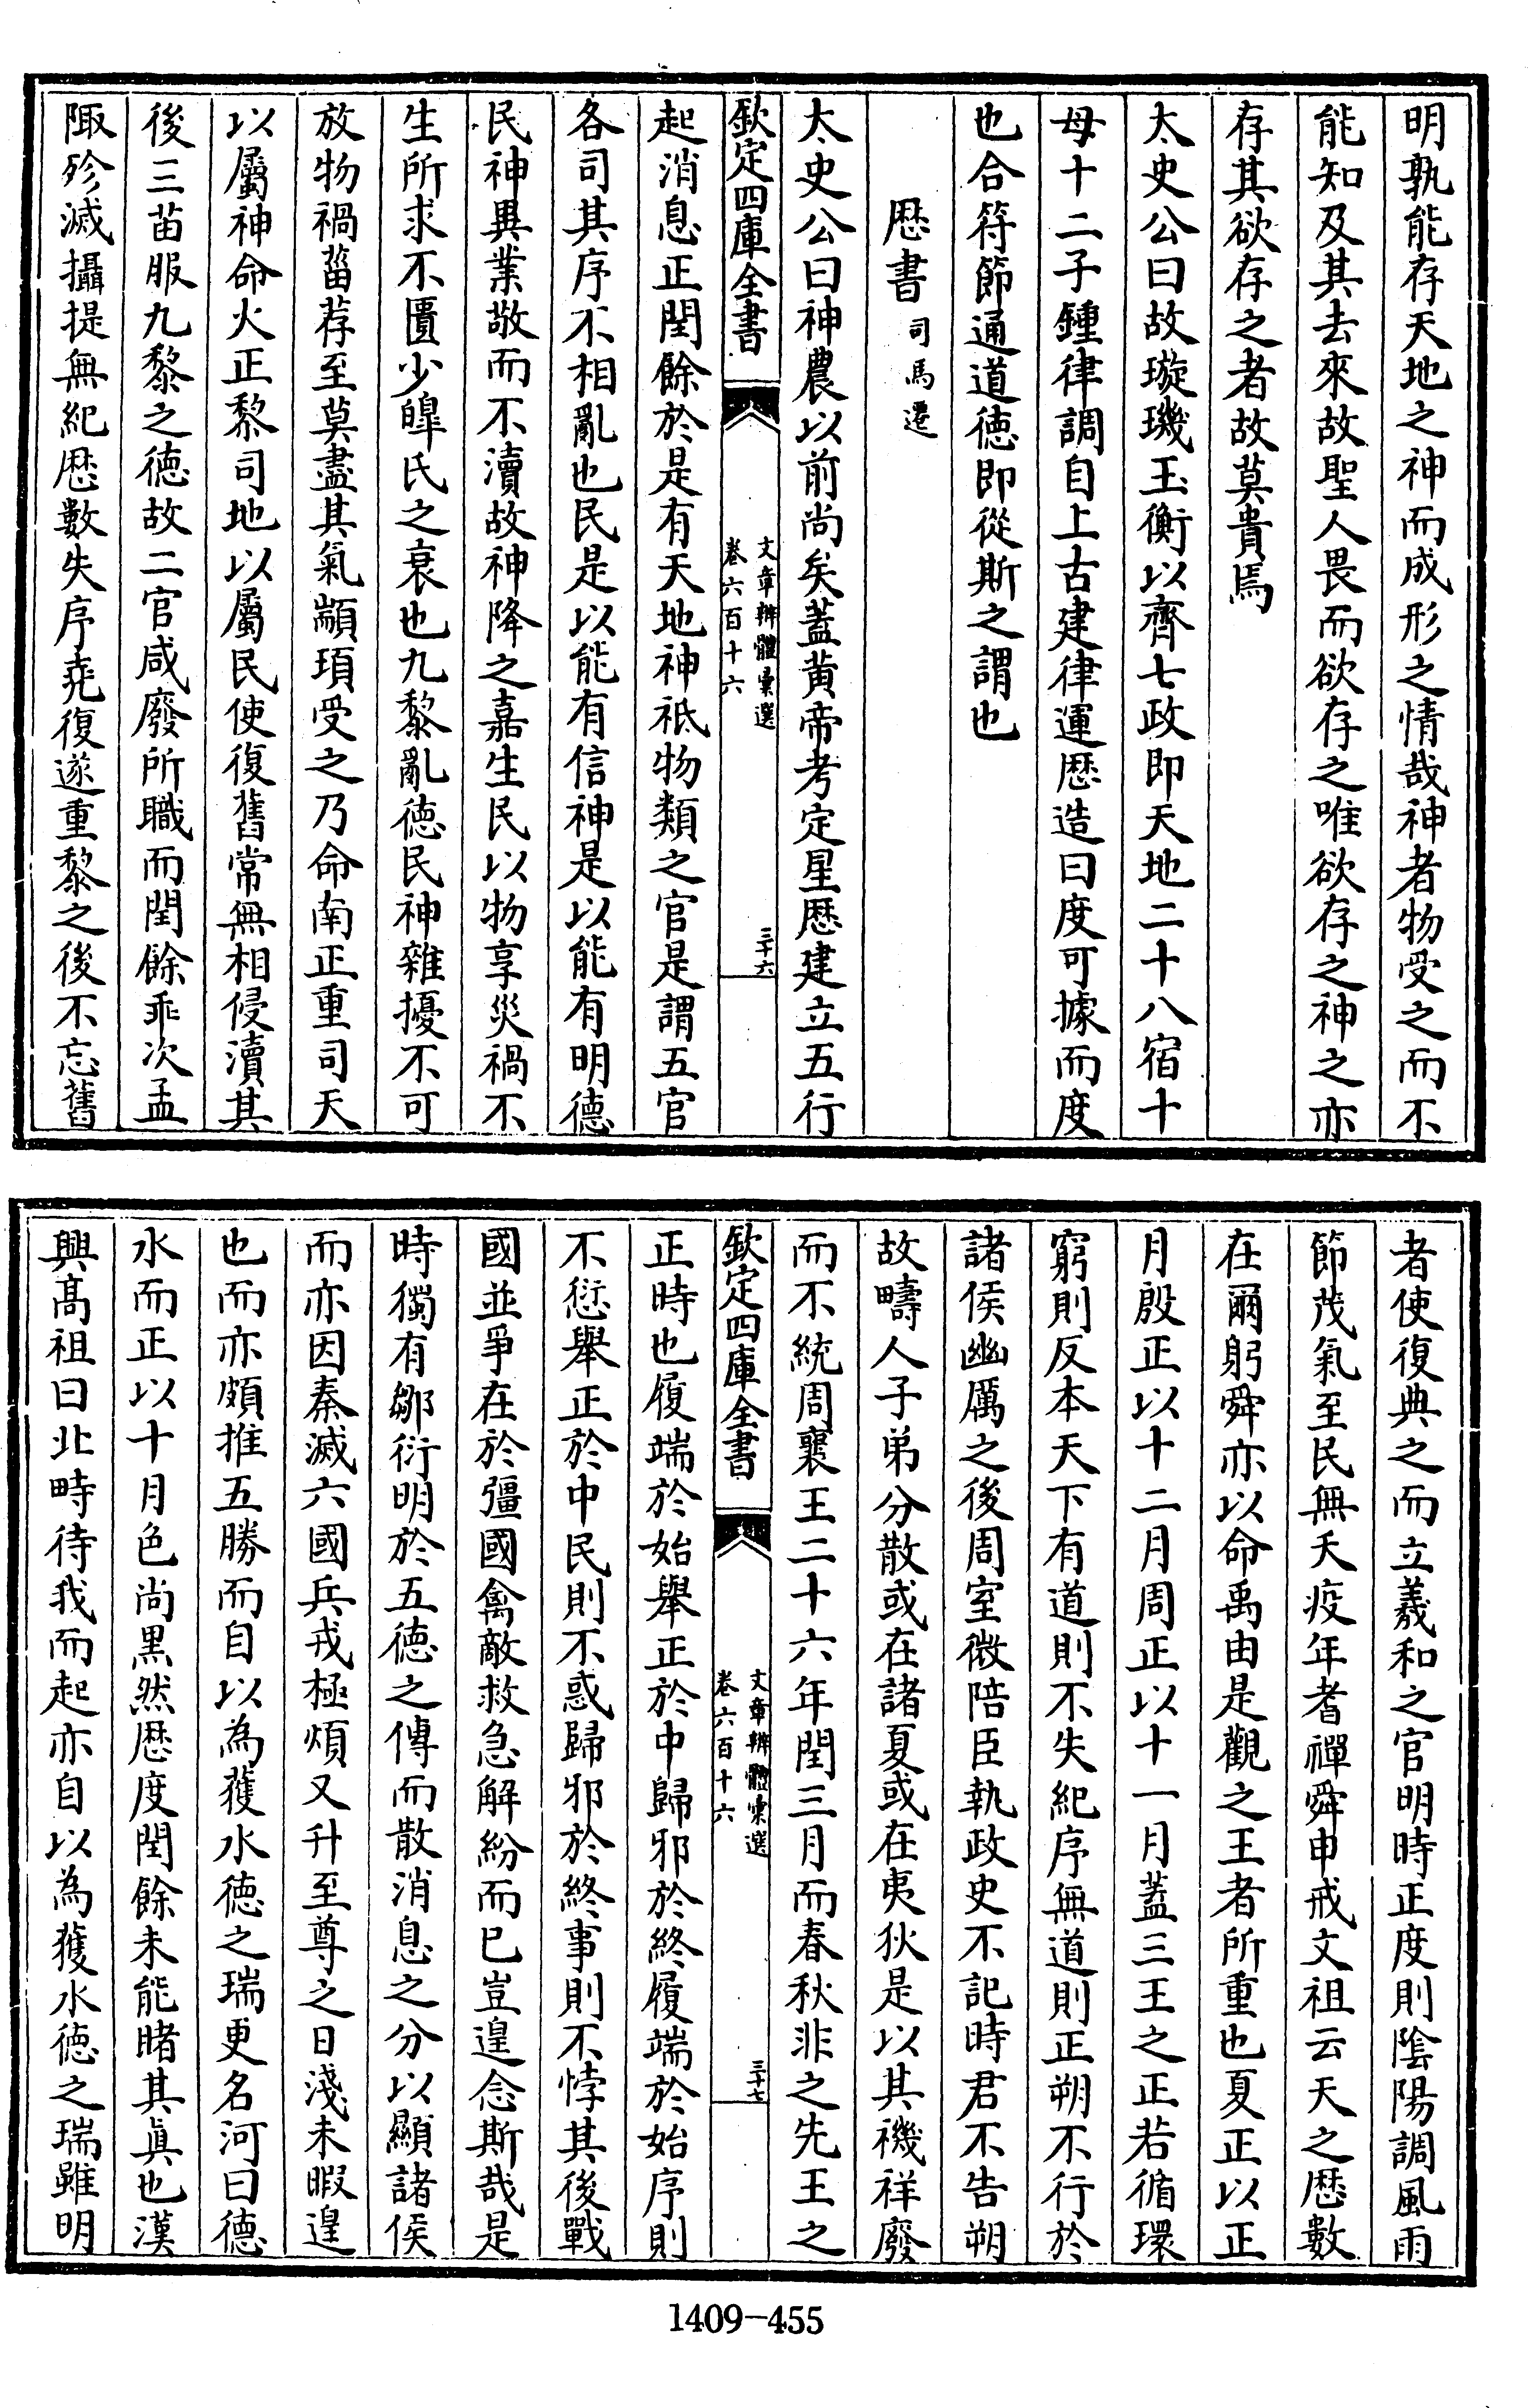 明孰能存天地之神而成形之情哉神者物受之而不
能知及其去來故聖人畏而欲存之唯欲存之神之亦
存其欲存之者故莫貴焉
太史公曰故璇璣玉衡以齊七政即天地二十八宿十
母十二子鍾律調自上古建律運厯造曰度可據而度
也合符節通道徳即從斯之謂也
厯書司馬遷
太史公曰神農以前尚矣蓋黄帝考定星厯建立五行
欽定四庫全書
文章辨體彙選
卷六百十六
三十六
起消息正閏餘於是有天地神祇物類之官是謂五官
各司其序不相亂也民是以能有信神是以能有明德
民神異業敬而不瀆故神降之嘉生民以物享災禍不
生所求不匱少皥氏之衰也九黎亂徳民神雜擾不可
放物禍菑荐至莫盡其氣顓頊受之乃命南正重司天
以屬神命火正黎司地以屬民使復舊常無相侵瀆其
後三苗服九黎之徳故二官咸廢所職而閏餘乖次孟
陬殄滅攝提無紀厯數失序堯復遂重黎之後不忘舊
者使復典之而立羲和之官明時正度則隂陽調風雨
節茂氣至民無夭疫年耆禪舜申戒文祖云天之厯數
在爾躬舜亦以命禹由是觀之王者所重也夏正以正
月殷正以十二月周正以十一月蓋三王之正若循環
窮則反本天下有道則不失紀序無道則正朔不行於
諸侯幽厲之後周室微陪臣執政史不記時君不告朔
故疇人子弟分散或在諸夏或在夷狄是以其禨祥廢
而不統周襄王二十六年閏三月而春秋非之先王之
欽定四庫全書
文章辨體彙選
卷六百十六
三十七
正時也履端於始舉正於中歸邪於終履端於始序則
不愆舉正於中民則不惑歸邪於終事則不悖其後戰
國並爭在於彊國禽敵救急解紛而已豈遑念斯哉是
時獨有鄒衍明於五徳之傳而散消息之分以顯諸侯
而亦因秦滅六國兵戎極煩又升至尊之日淺未暇遑
也而亦頗推五勝而自以為獲水徳之瑞更名河曰德
水而正以十月色尚黒然厯度閏餘未能睹其真也漢
興髙祖曰北畤待我而起亦自以為獲水徳之瑞雖明
1409-455